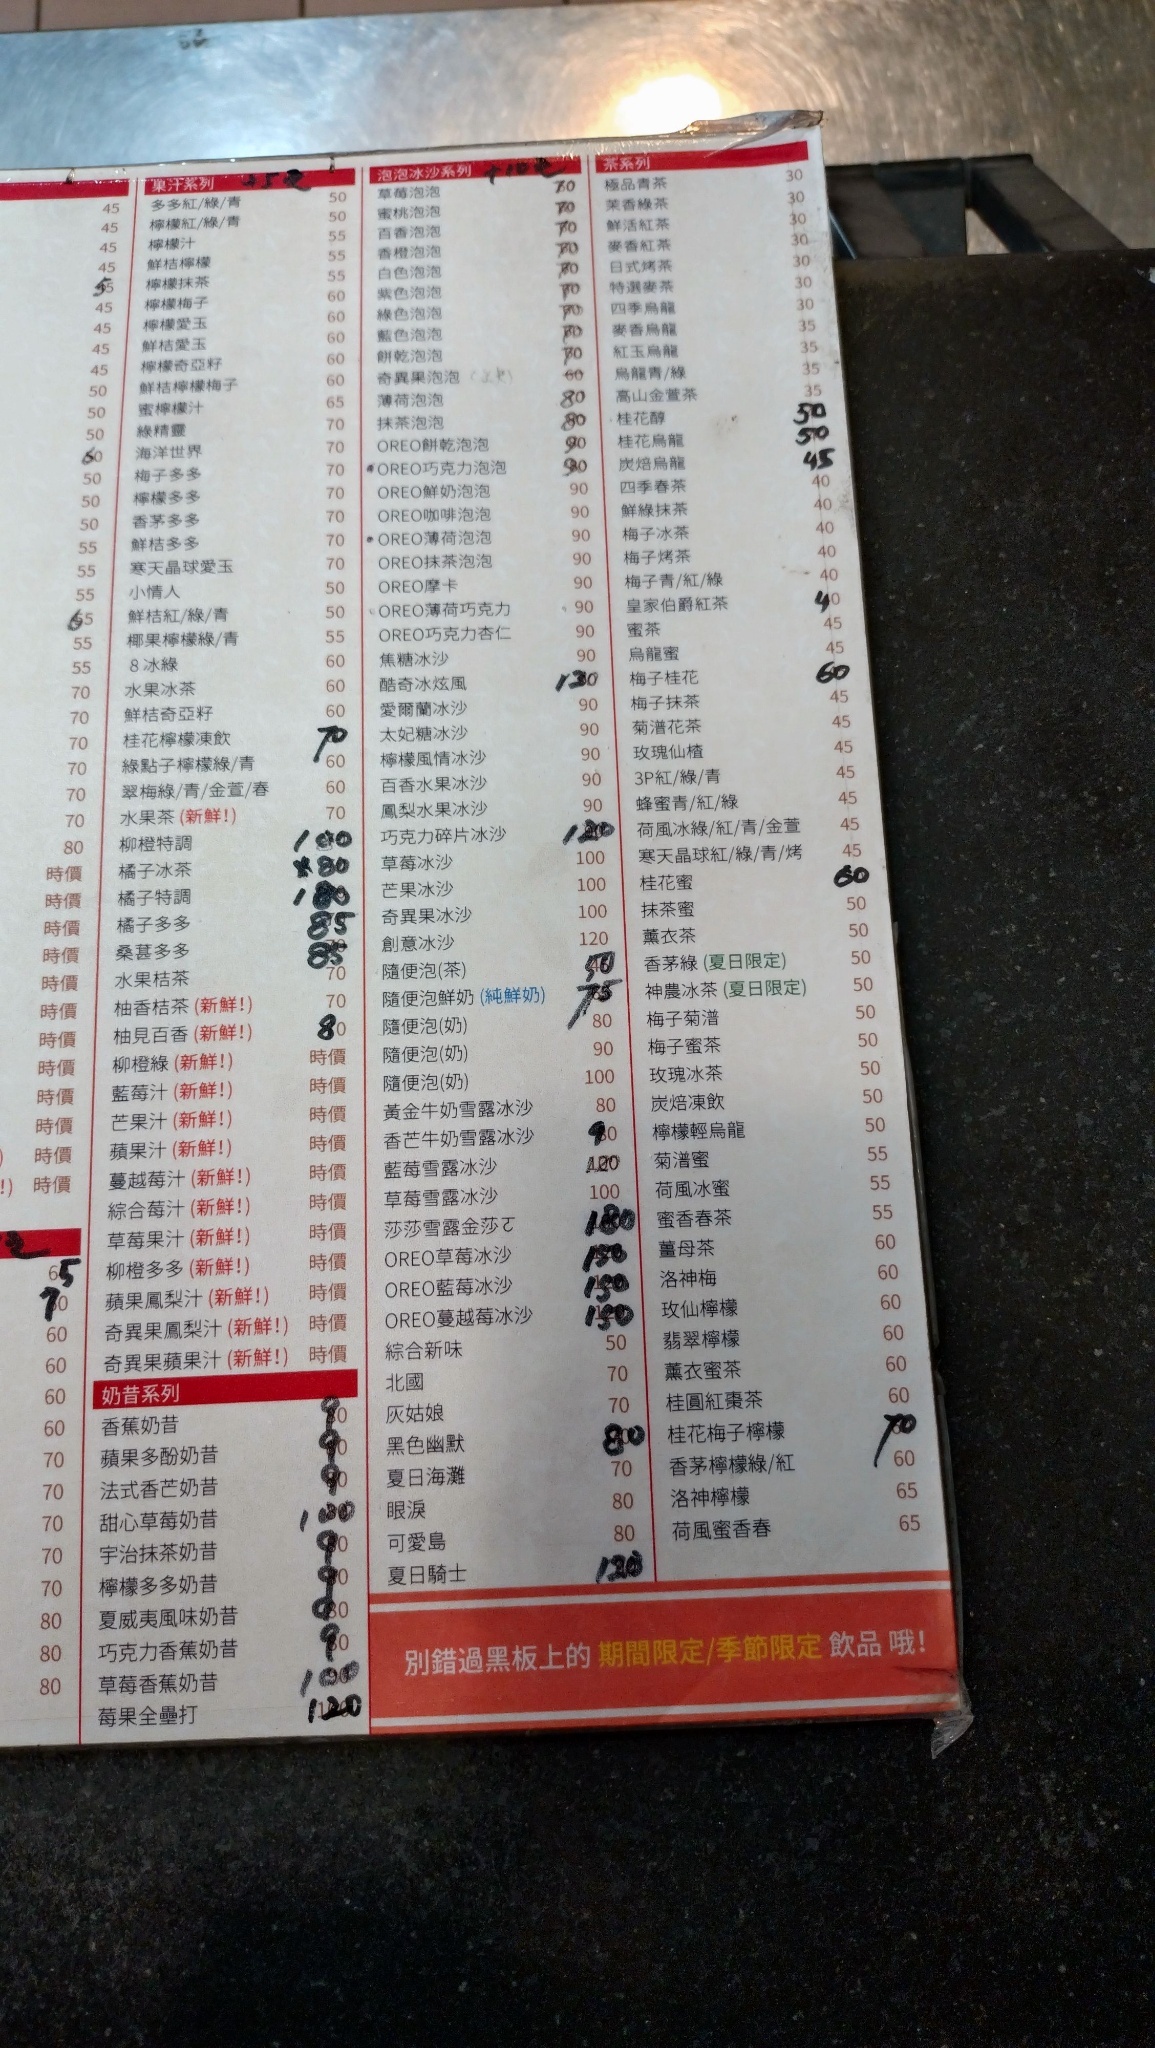 45
45
45
45
5
45
45
45
50
50
50
60
50
50
50
55
55
55
65
55
55
70
70
70
70
70
70
80
時價
時價
時價
時價
時價
時價
時價
時價
時價
時價
時價
) 時價
!) 時價
65
70
60
60
60
60
70
70
70
70
70
80
80
80
果汁系列
多多紅/綠/青 50
檸檬紅/綠/青 50
檸檬汁 55
鮮桔檸檬 55
檸檬抹茶 55
檸檬梅子 60
檸檬愛玉 60
鮮桔愛玉 60
檸檬奇亞籽 60
鮮桔檸檬梅子 60
蜜檸檬汁 65
綠精靈 70
海洋世界 70
梅子多多 70
檸檬多多 70
香茅多多 70
鮮桔多多 70
寒天晶球愛玉 70
小情人 50
鮮桔紅/綠/青 50
椰果檸檬綠/青 55
8冰綠 60
水果冰茶 60
鮮桔奇亞籽 60
桂花檸檬凍飲 70
綠點子檸檬綠/青 60
翠梅綠/青/金萱/春 60
水果茶 (新鮮!) 70
柳橙特調 100
橘子冰茶 80
橘子特調 180
橘子多多 85
桑葚多多 85
水果桔茶 70
柚香桔茶 (新鮮!) 70
柚見百香 (新鮮!) 80
柳橙綠 (新鮮!) 時價
藍莓汁 (新鮮!) 時價
芒果汁 (新鮮!) 時價
蘋果汁 (新鮮!) 時價
蔓越莓汁 (新鮮!) 時價
綜合莓汁 (新鮮!) 時價
草莓果汁 (新鮮!) 時價
柳橙多多 (新鮮!) 時價
蘋果鳳梨汁 (新鮮!) 時價
奇異果鳳梨汁 (新鮮!) 時價
奇異果蘋果汁 (新鮮!) 時價
奶昔系列
香蕉奶昔 90
蘋果多酚奶昔 90
法式香芒奶昔 90
甜心草莓奶昔 100
宇治抹茶奶昔 90
檸檬多多奶昔 90
夏威夷風味奶昔 90
巧克力香蕉奶昔 90
草莓香蕉奶昔 100
莓果全壘打 120
泡泡冰沙系列 +10元
草莓泡泡 70
蜜桃泡泡 70
百香泡泡 70
香橙泡泡 70
白色泡泡 70
紫色泡泡 70
綠色泡泡 70
藍色泡泡 70
餅乾泡泡 70
奇異果泡泡 60
薄荷泡泡 80
抹茶泡泡 80
OREO餅乾泡泡 90
OREO巧克力泡泡 90
OREO鮮奶泡泡 90
OREO咖啡泡泡 90
OREO薄荷泡泡 90
OREO抹茶泡泡 90
OREO摩卡 90
OREO薄荷巧克力 90
OREO巧克力杏仁 90
焦糖冰沙 90
酷奇冰炫風 130
愛爾蘭冰沙 90
太妃糖冰沙 90
檸檬風情冰沙 90
百香水果冰沙 90
鳳梨水果冰沙 90
巧克力碎片冰沙 120
草莓冰沙 100
芒果冰沙 100
奇異果冰沙 100
創意冰沙 120
隨便泡(茶) 50
隨便泡鮮奶 (純鮮奶) 75
隨便泡(奶) 80
隨便泡(奶) 90
隨便泡(奶) 100
黃金牛奶雪露冰沙 80
香芒牛奶雪露冰沙 90
藍莓雪露冰沙 100
草莓雪露冰沙 100
莎莎雪露金莎ㄛ 180
OREO草莓冰沙 150
OREO藍莓冰沙 150
OREO蔓越莓冰沙 150
綜合新味 50
北國 70
灰姑娘 70
黑色幽默 80
夏日海灘 70
眼淚 80
可愛島 80
夏日騎士 120
茶系列
極品青茶 30
茉香綠茶 30
鮮活紅茶 30
麥香紅茶 30
日式烤茶 30
特選麥茶 30
四季烏龍 30
麥香烏龍 35
紅玉烏龍 35
烏龍青/綠 35
高山金萱茶 35
桂花醇 50
桂花烏龍 50
炭焙烏龍 45
四季春茶 40
鮮綠抹茶 40
梅子冰茶 40
梅子烤茶 40
梅子青/紅/綠 40
皇家伯爵紅茶 40
蜜茶 45
烏龍蜜 45
梅子桂花 60
梅子抹茶 45
菊潽花茶 45
玫瑰仙楂 45
3P紅/綠/青 45
蜂蜜青/紅/綠 45
荷風冰綠/紅/青/金萱 45
寒天晶球紅/綠/青/烤 45
桂花蜜 60
抹茶蜜 50
薰衣茶 50
香茅綠 (夏日限定) 50
神農冰茶 (夏日限定) 50
梅子菊潽 50
梅子蜜茶 50
玫瑰冰茶 50
炭焙凍飲 50
檸檬輕烏龍 50
菊潽蜜 55
荷風冰蜜 55
蜜香春茶 55
薑母茶 60
洛神梅 60
玫仙檸檬 60
翡翠檸檬 60
薰衣蜜茶 60
桂圓紅棗茶 60
桂花梅子檸檬 70
香茅檸檬綠/紅 60
洛神檸檬 65
荷風蜜香春 65
別錯過黑板上的 期間限定/季節限定 飲品 哦!